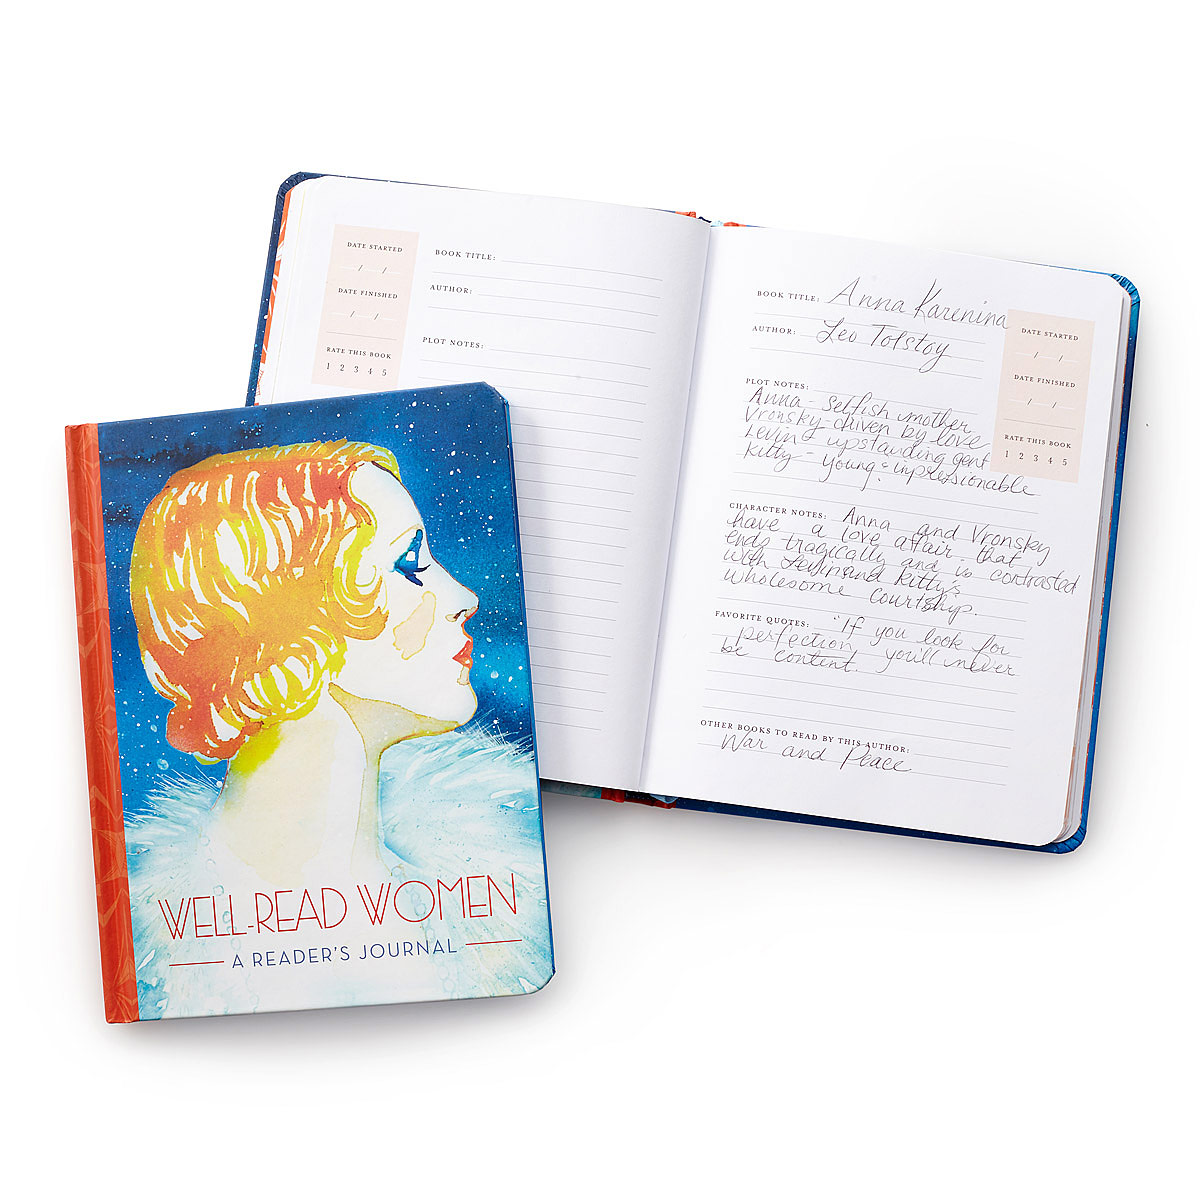 DATE STARTED
/ /
DATE FINISHED
/ /
RATE THIS BOOK
1 2 3 4 5
BOOK TITLE:
AUTHOR:
PLOT NOTES:
BOOK TITLE: Anna Karenina
AUTHOR: Leo Tolstoy
DATE STARTED
/ /
DATE FINISHED
/ /
RATE THIS BOOK
1 2 3 4 5
PLOT NOTES:
Anna - selfish mother
Vronsky - driven by love
Levin - upstanding gent
Kitty - young & impressionable
CHARACTER NOTES: Anna and Vronsky
have a love affair that
ends tragically and is contrasted
with Levin and Kitty's
wholesome courtship.
FAVORITE QUOTES: "If you look for
perfection, you'll never
be content.
OTHER BOOKS TO READ BY THIS AUTHOR:
War and Peace
WELL-READ WOMEN
A READER'S JOURNAL